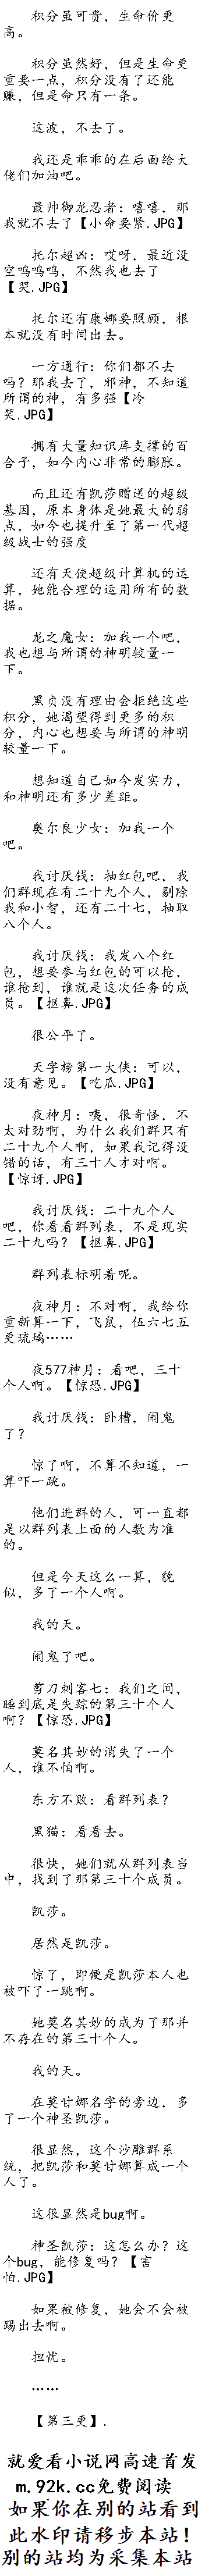 积分虽可贵，生命价更
高。
积分虽然好，但是生命更
重要一点，积分没有了还能
赚，但是命只有一条。
这波，不去了。
我还是乖乖的在后面给大
佬们加油吧。
最帅御龙忍者：嘻嘻，那
我就不去了【小命要紧.JPG】
托尔超凶：哎呀，最近没
空呜呜呜，不然我也去了
【哭.JPG】
托尔还有康娜要照顾，根
本就没有时间出去。
一方通行：你们都不去
吗？那我去了，邪神，不知道
所谓的神，有多强【冷
笑.JPG】
拥有大量知识库支撑的百
合子，如今内心非常的膨胀。
而且还有凯莎赠送的超级
基因，原本身体是她最大的弱
点，如今也提升至了第一代超
级战士的强度
还有天使超级计算机的运
算，她能合理的运用所有的数
据。
龙之魔女：加我一个吧，
我也想与所谓的神明较量一
下。
黑贞没有理由会拒绝这些
积分，她渴望得到更多的积
分，内心也想要与所谓的神明
较量一下。
想知道自己如今发实力，
和神明还有多少差距。
奥尔良少女：加我一个
吧。
我讨厌钱：抽红包吧，我
们群现在有二十九个人，剔除
我和小智，还有二十七，抽取
八个人。
我讨厌钱：我发八个红
包，想要参与红包的可以抢，
谁抢到，谁就是这次任务的成
员。【抠鼻.JPG】
很公平了。
天字榜第一大侠：可以，
没有意见。【吃瓜.JPG】
夜神月：咦，很奇怪，不
太对劲啊，为什么我们群只有
二十九个人啊，如果我记得没
错的话，有三十人才对啊。
【惊讶.JPG】
我讨厌钱：二十九个人
吧，你看看群列表，不是现实
二十九吗？【抠鼻.JPG】
群列表标明着呢。
夜神月：不对啊，我给你
重新算一下，飞鼠，伍六七五
更琉璃……
夜577神月：看吧，三十
个人啊。【惊恐.JPG】
我讨厌钱：卧槽，闹鬼
了？
惊了啊，不算不知道，一
算吓一跳。
他们进群的人，可一直都
是以群列表上面的人数为准
的。
但是今天这么一算，貌
似，多了一个人啊。
我的天。
闹鬼了吧。
剪刀刺客七：我们之间，
睡到底是失踪的第三十个人
啊？【惊恐.JPG】
莫名其妙的消失了一个
人，谁不怕啊。
东方不败：看群列表？
黑猫：看看去。
很快，她们就从群列表当
中，找到了那第三十个成员。
凯莎。
居然是凯莎。
惊了，即便是凯莎本人也
被吓了一跳啊。
她莫名其妙的成为了那并
不存在的第三十个人。
我的天。
在莫甘娜名字的旁边，多
了一个神圣凯莎。
很显然，这个沙雕群系
统，把凯莎和莫甘娜算成一个
人了。
这很显然是bug啊。
神圣凯莎：这怎么办？这
个bug，能修复吗？【害
怕.JPG】
如果被修复，她会不会被
踢出去啊。
担忧。
……
【第三更】.
就爱看小说网高速首发
m.92k.cc免费阅读
如果你在别的站看到
此水印请移步本站！
别的站均为采集本站